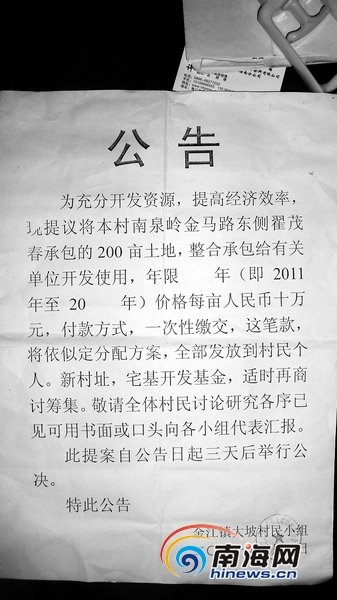 公告
为充分开发资源，提高经济效率，
现提议将本村南泉岭金马路东侧翟茂
春承包的200亩土地，整合承包给有关
单位开发使用，年限 年（即2011
年至20 年）价格每亩人民币十万
元，付款方式，一次性缴交，这笔款，
将依似定分配方案，全部发放到村民个
人。新村址，宅基开发基金，适时再商
讨筹集。敬请全体村民讨论研究各序已
见可用书面或口头向各小组代表汇报。
此提案自公告日起三天后举行公
决。
特此公告
金江镇大坡村民小组
南海网
hinews.cn